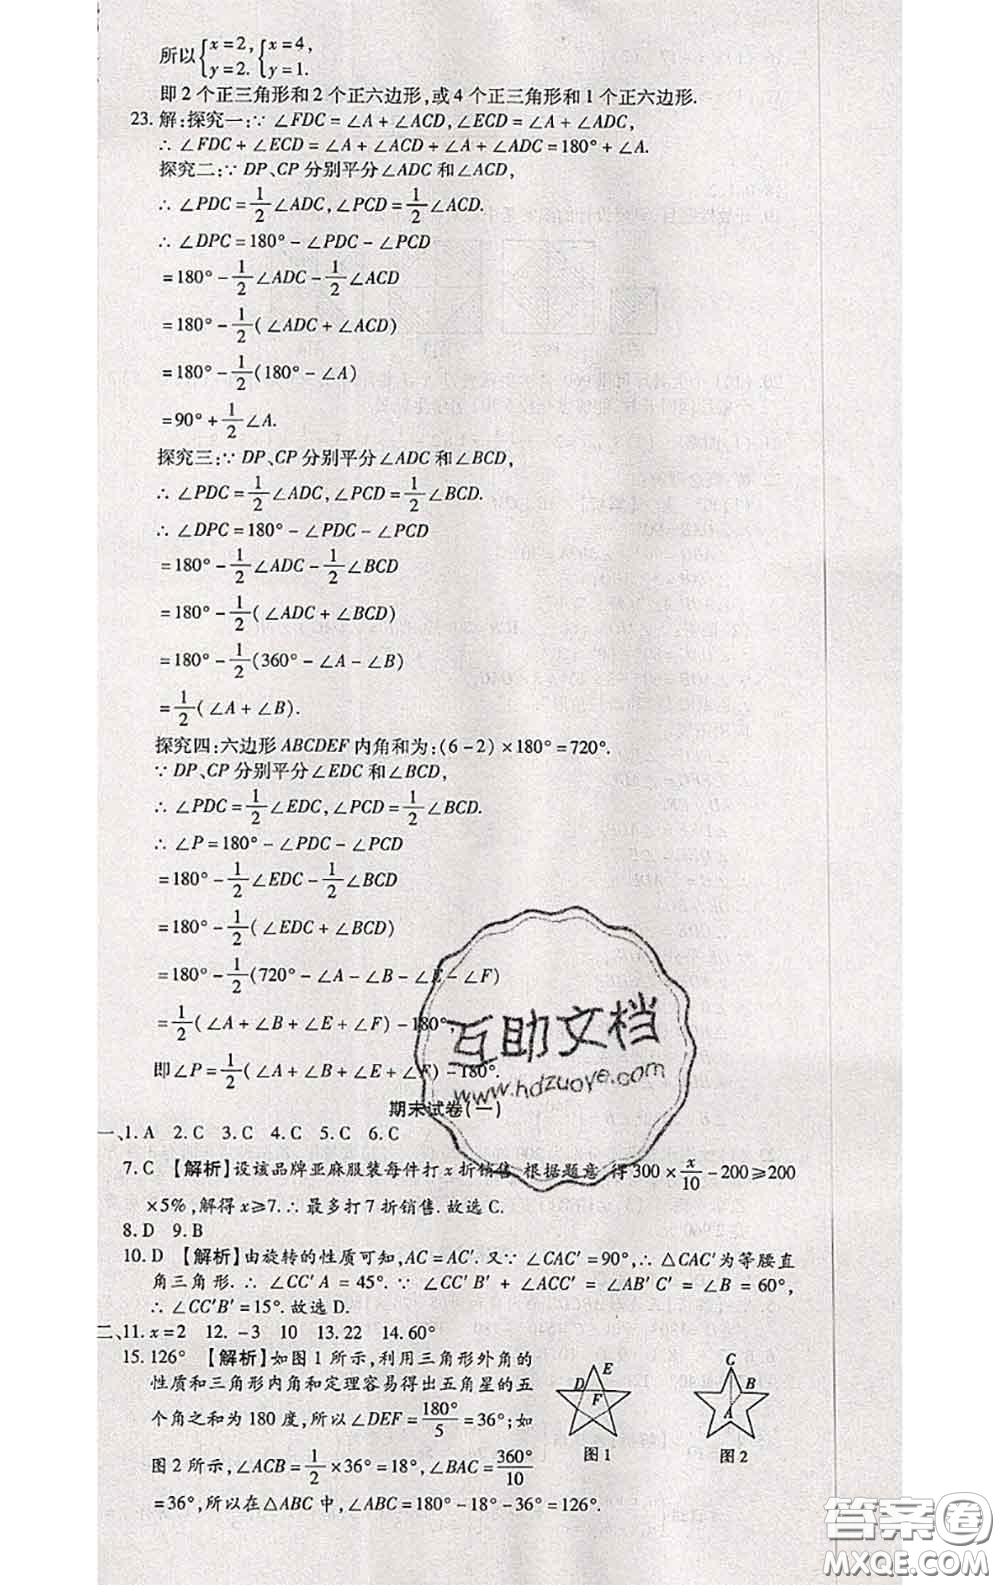 所以{x=2, y=2. {x=4, y=1.
即2个正三角形和2个正六边形,或4个正三角形和1个正六边形.
23. 解:探究一:∵ ∠FDC=∠A+∠ACD,∠ECD=∠A+∠ADC,
∴ ∠FDC+∠ECD=∠A+∠ACD+∠A+∠ADC=180°+∠A.
探究二:∵ DP、CP 分别平分∠ADC 和∠ACD,
∴ ∠PDC=1/2∠ADC,∠PCD=1/2∠ACD.
∴ ∠DPC=180°-∠PDC-∠PCD
=180°-1/2∠ADC-1/2∠ACD
=180°-1/2(∠ADC+∠ACD)
=180°-1/2(180°-∠A)
=90°+1/2∠A.
探究三:∵ DP、CP 分别平分∠ADC 和∠BCD,
∴ ∠PDC=1/2∠ADC,∠PCD=1/2∠BCD.
∴ ∠DPC=180°-∠PDC-∠PCD
=180°-1/2∠ADC-1/2∠BCD
=180°-1/2(∠ADC+∠BCD)
=180°-1/2(360°-∠A-∠B)
=1/2(∠A+∠B).
探究四:六边形 ABCDEF 内角和为:(6-2)×180°=720°.
∵ DP、CP 分别平分∠EDC 和∠BCD,
∴ ∠PDC=1/2∠EDC,∠PCD=1/2∠BCD.
∴ ∠P=180°-∠PDC-∠PCD
=180°-1/2∠EDC-1/2∠BCD
=180°-1/2(∠EDC+∠BCD)
=180°-1/2(720°-∠A-∠B-∠E-∠F)
=1/2(∠A+∠B+∠E+∠F)-180°,
即∠P=1/2(∠A+∠B+∠E+∠F)-180°.
互助文档
www.hdzuoye.com
期末试卷(一)
一、1. A 2. C 3. C 4. C 5. C 6. C
7. C 【解析】设该品牌亚麻服装每件打 x 折销售,根据题意,得300×x/10-200≥200
×5%,解得 x≥7.∴ 最多打7折销售.故选 C.
8. D 9. B
10. D 【解析】由旋转的性质可知,AC=AC′.又∵ ∠CAC′=90°,∴ △CAC′为等腰直
角三角形.∴ ∠CC′A=45°.∵ ∠CC′B′+∠ACC′=∠AB′C′=∠B=60°,
∴ ∠CC′B′=15°.故选 D.
二、11. x=2 12. -3 10 13. 22 14. 60°
15. 126° 【解析】如图1所示,利用三角形外角的
性质和三角形内角和定理容易得出五角星的五
个角之和为180度,所以∠DEF=180°/5=36°;如
图2所示,∠ACB=1/2×36°=18°,∠BAC=360°/10
=36°,所以在△ABC 中,∠ABC=180°-18°-36°=126°.
D E F
图1
C B A
图2
答案圈
MXQE.COM